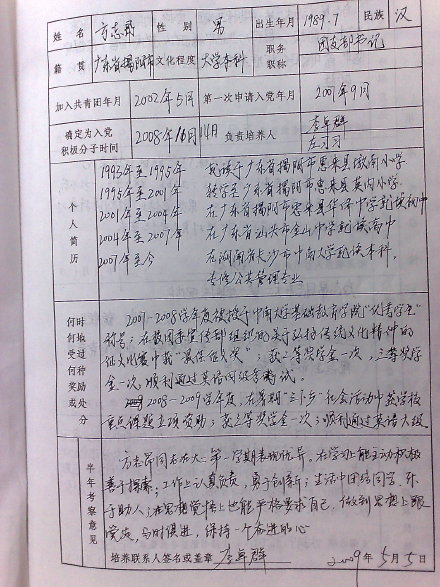 姓 名 方志昂 性 别 男 出生年月 1989.7 民族 汉
籍 贯 广东省揭阳市 文化程度 大学本科 职务 职称 团支部书记
加入共青团年月 2002年5月 第一次申请入党年月 2007年9月
确定为入党积极分子时间 2008年10月14日 负责培养人 李年群
个人简历
1993年至1995年 就读于广东省揭阳市惠来县 小学
1995年至2001年 转学至广东省揭阳市惠来县 小学
2001年至2004年 在广东省揭阳市惠来县华 中学就读初中
2004年至2007年 在广东省汕头市金山中学就读高中
2007年至今 在湖南省长沙市中南大学就读本科,
专修公共管理专业
何时何地受过何种奖励或处分
2007-2008学年度被授予中南大学基础教育学院"优秀学生"
称号;在校团委宣传部组织的关于弘扬传统文化精神的
征文比赛中获"最佳征文奖";获二等奖学金一次,三等奖学
金一次,顺利通过英语四级考试。
2008-2009学年度,在暑期"三下乡"社会活动中获学校
重点课题立项资助;获三等奖学金一次;顺利通过英语六级
半年考察意见
方志昂同志在大二第一学期表现优异。在学习上能主动积极
善于探索;工作上认真负责,勇于创新;生活中团结同学,乐
于助人;在思想觉悟上也能严格要求自己,做到思想上跟
党走,与时俱进,保持一个奋进的心
培养联系人签名或盖章 李年群 2009年5月5日